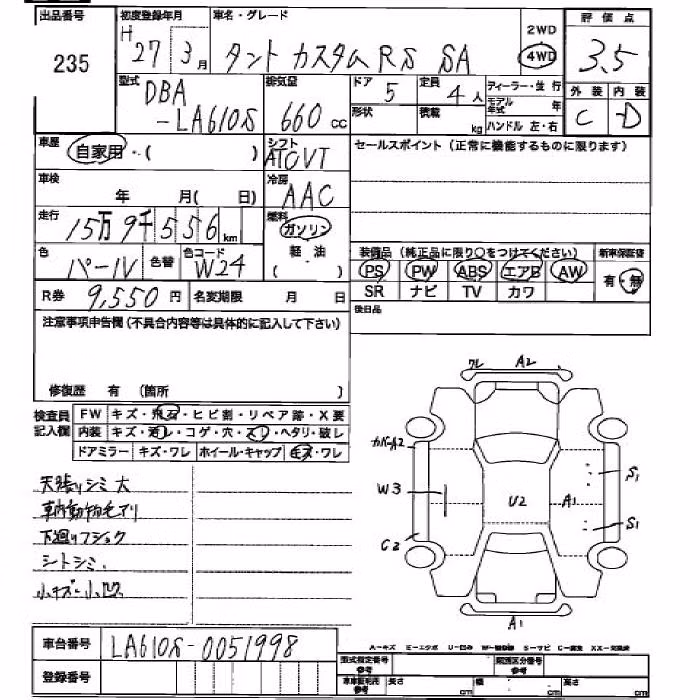 出品番号 初度登録年月 車名・グレード 2WD 評価点
235 H 27 3月 タント カスタム RS SA 4WD 3.5
型式 排気量 ドア 定員 ディーラー・並行 外装 内装
DBA 5 4人 モデル年式 年 C D
-LA610S 660cc 形状 積載 kg ハンドル 左・右
車歴 自家用・( ) シフト ATCVT セールスポイント(正常に機能するものに限ります)
車検 年 月( 日) 冷房 AAC
走行 15万9千556km 燃料 ガソリン
色 パール 色替 色コード W24 軽油 ( ) 装備品(純正品に限り○をつけてください) 新車保証書
PS PW ABS エアB AW 有・無
R券 9,550円 名変期限 月 日 SR ナビ TV カワ
注意事項申告欄(不具合内容等は具体的に記入して下さい) 後日品
修復歴 有 (箇所 )
検査員 FW キズ・飛石・ヒビ割・リペア跡・X要
記入欄 内装 キズ・汚レ・コゲ・穴・スリ・ヘタリ・破レ
ドアミラー キズ・ワレ ホイール・キャップ キズ・ワレ
ワレ A2
カバーA2
W3 U2 A1 S1
S1
C2
A1
天張りシミ大
車内動物毛アリ
下廻りフショク
シートシミ、
小キズ・小凹
車台番号 LA610S-0051998
A-キズ E-エクボ U-凹み S-サビ C-腐食
登録番号 型式指定番号 参考 類別区分番号 参考
参考 長さ cm 幅 cm 高さ cm